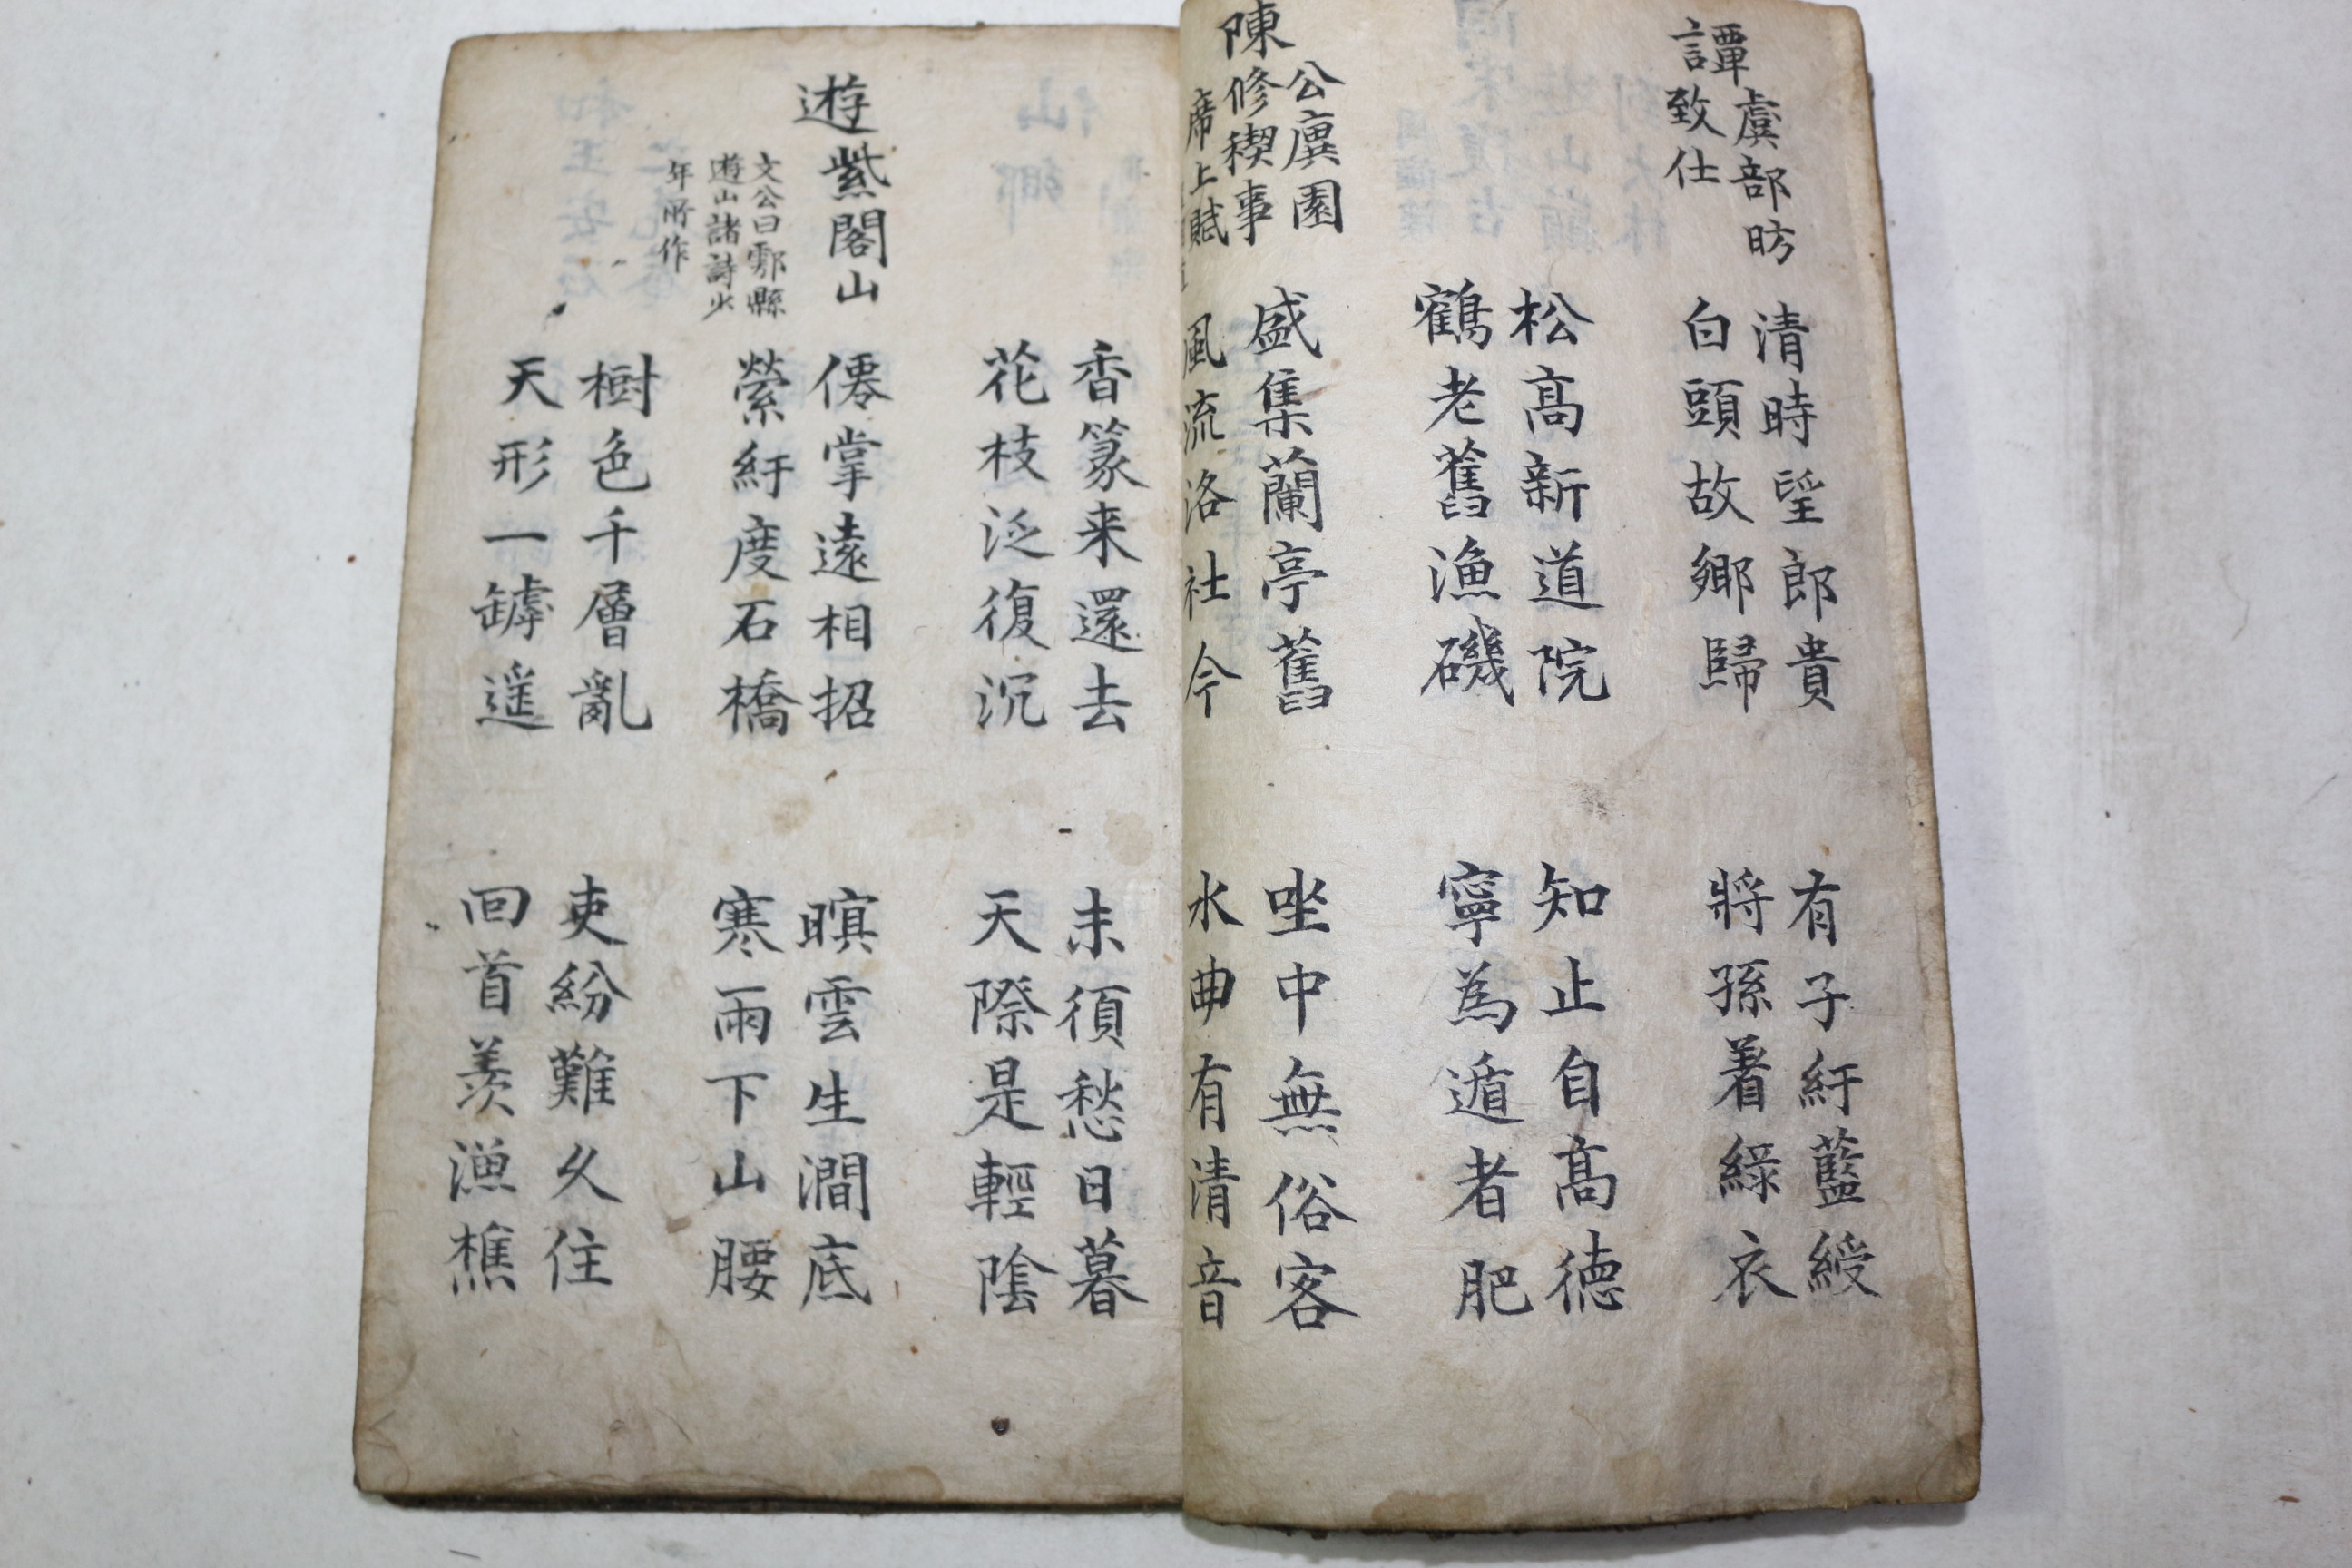 譚虞部昉
致仕
清時望郎貴
白頭故鄉歸
有子紆藍綬
將孫着綠衣
松高新道院
鶴老舊漁磯
知止自高德
寧為遁者肥
陳公廙園
修禊事
席上賦
盛集蘭亭舊
風流洛社今
坐中無俗客
水曲有清音
香篆来還去
花枝泛復沉
未須愁日暮
天際是輕陰
遊紫閣山
文公曰鄠縣
遊山諸詩少
年所作
僊掌遠相招
縈紆度石橋
暝雲生澗底
寒雨下山腰
樹色千層亂
天形一罅遥
吏紛難久住
回首羨漁樵